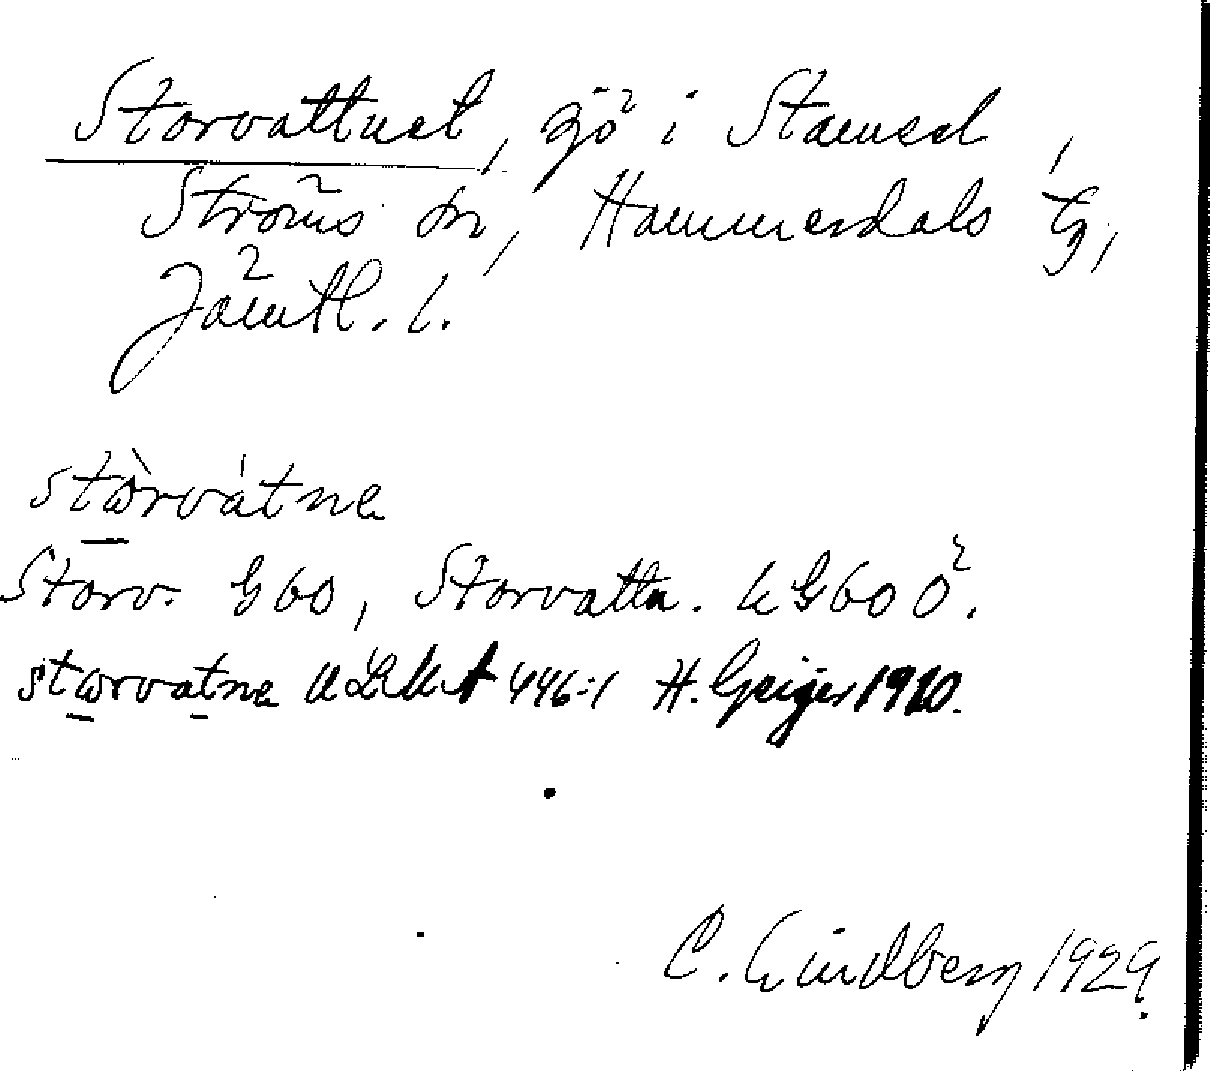 Storvattnet, sjö i Stamsel,
Ströms sn, Hammerdals tg,
Jämtl. l.
stòrvátne
Storv. G60, Storvattn. kG60 Ö.
storvatne ULMA 446:1 H. Geijer 1910.
C. Lindberg 1929.